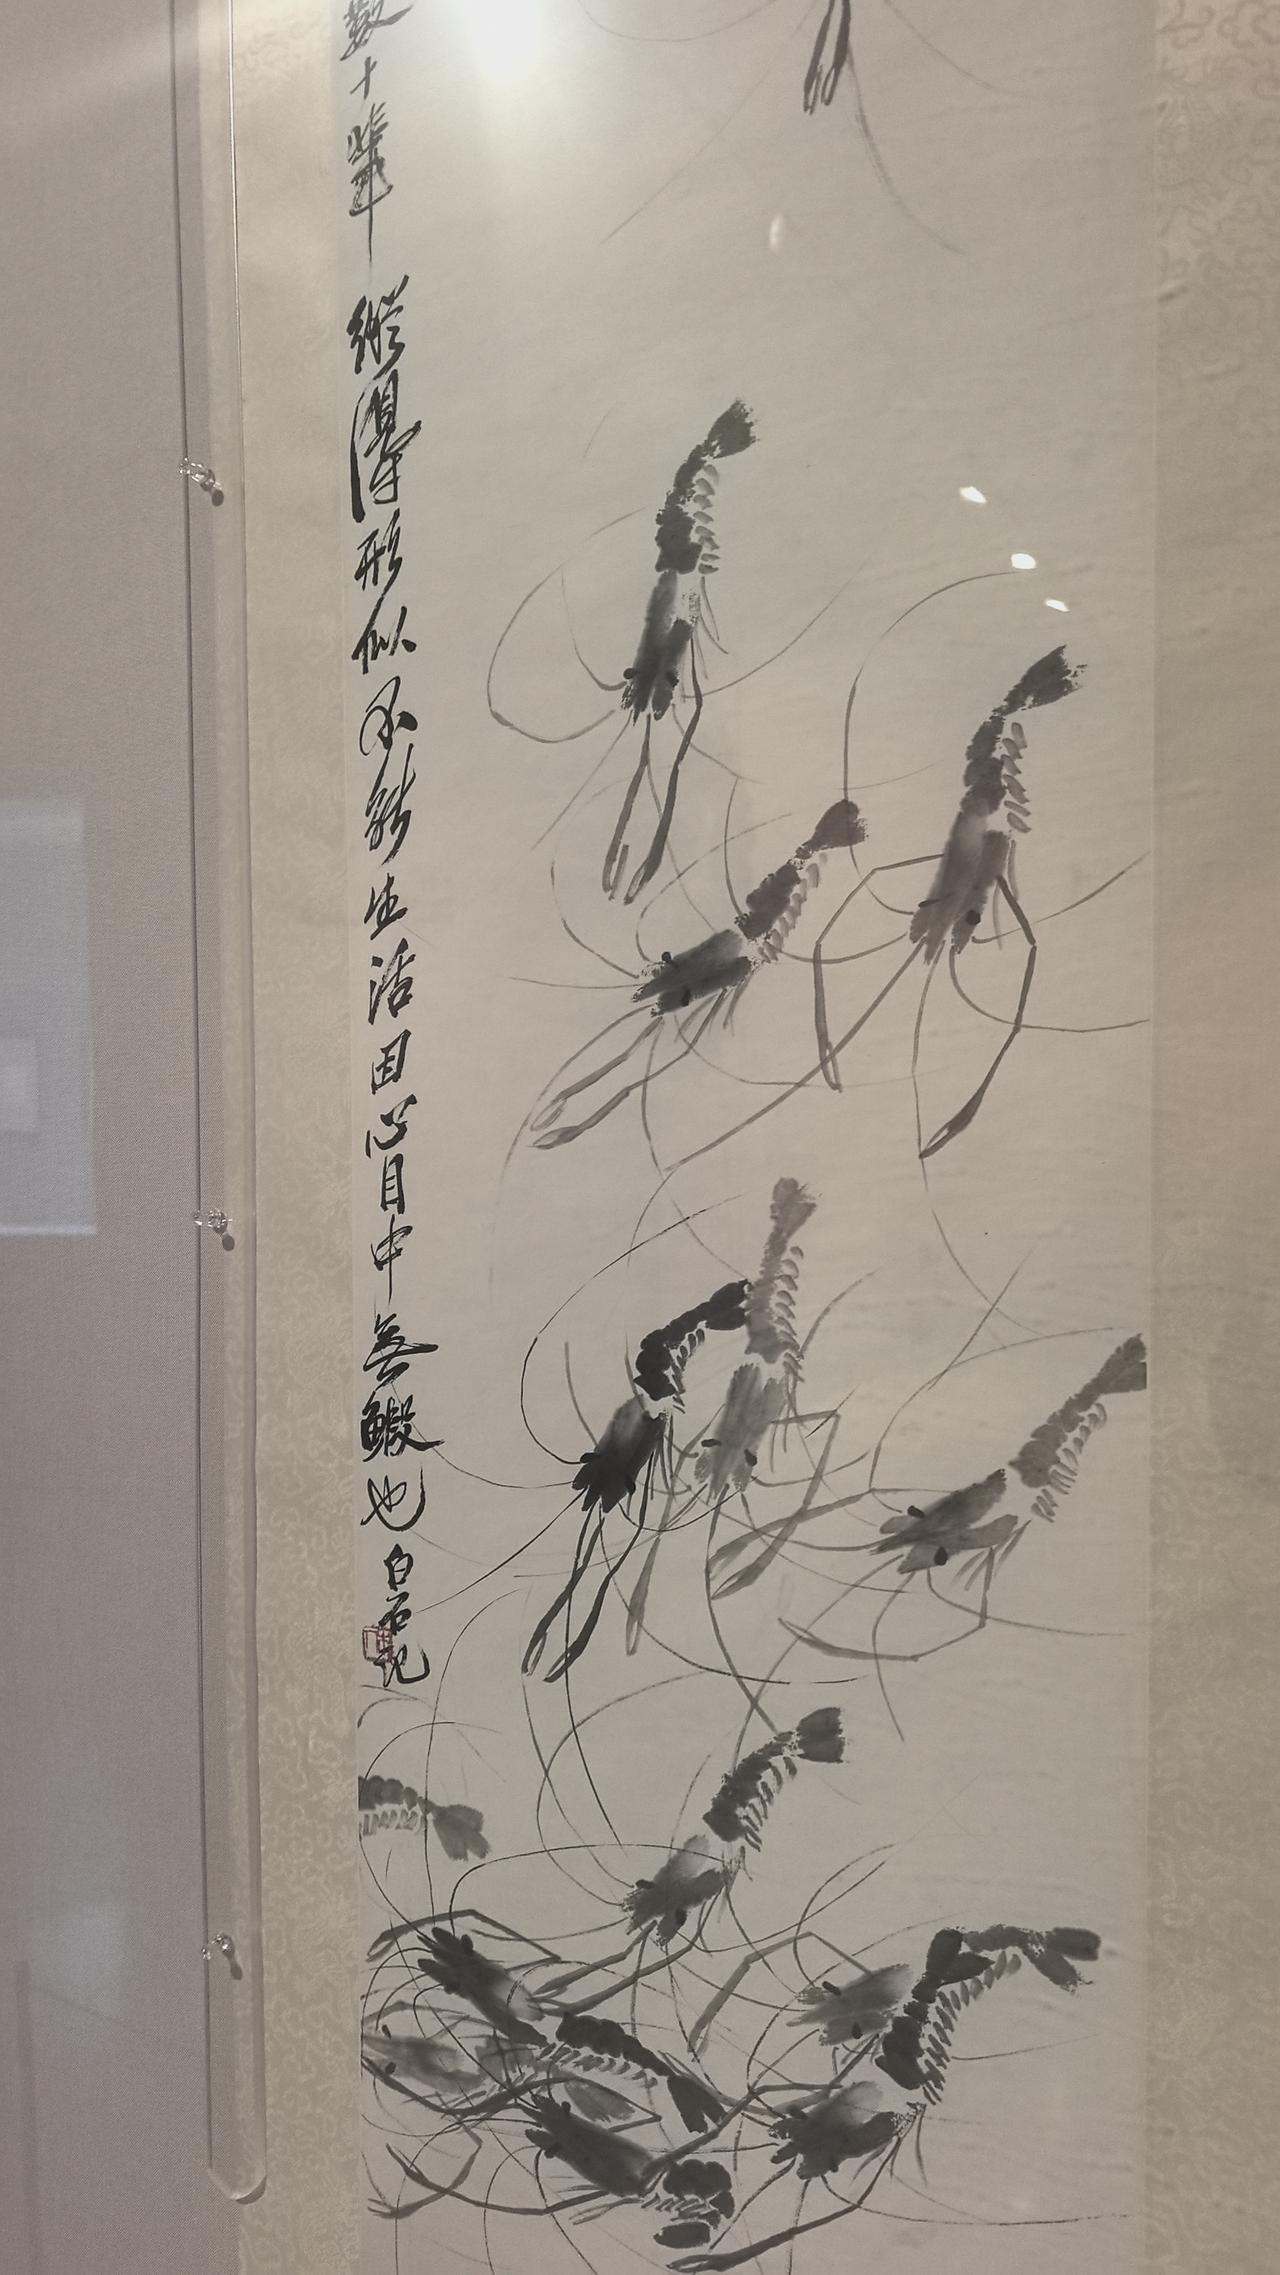 數十輩縱得形似不能生活因心目中無鰕也白石記